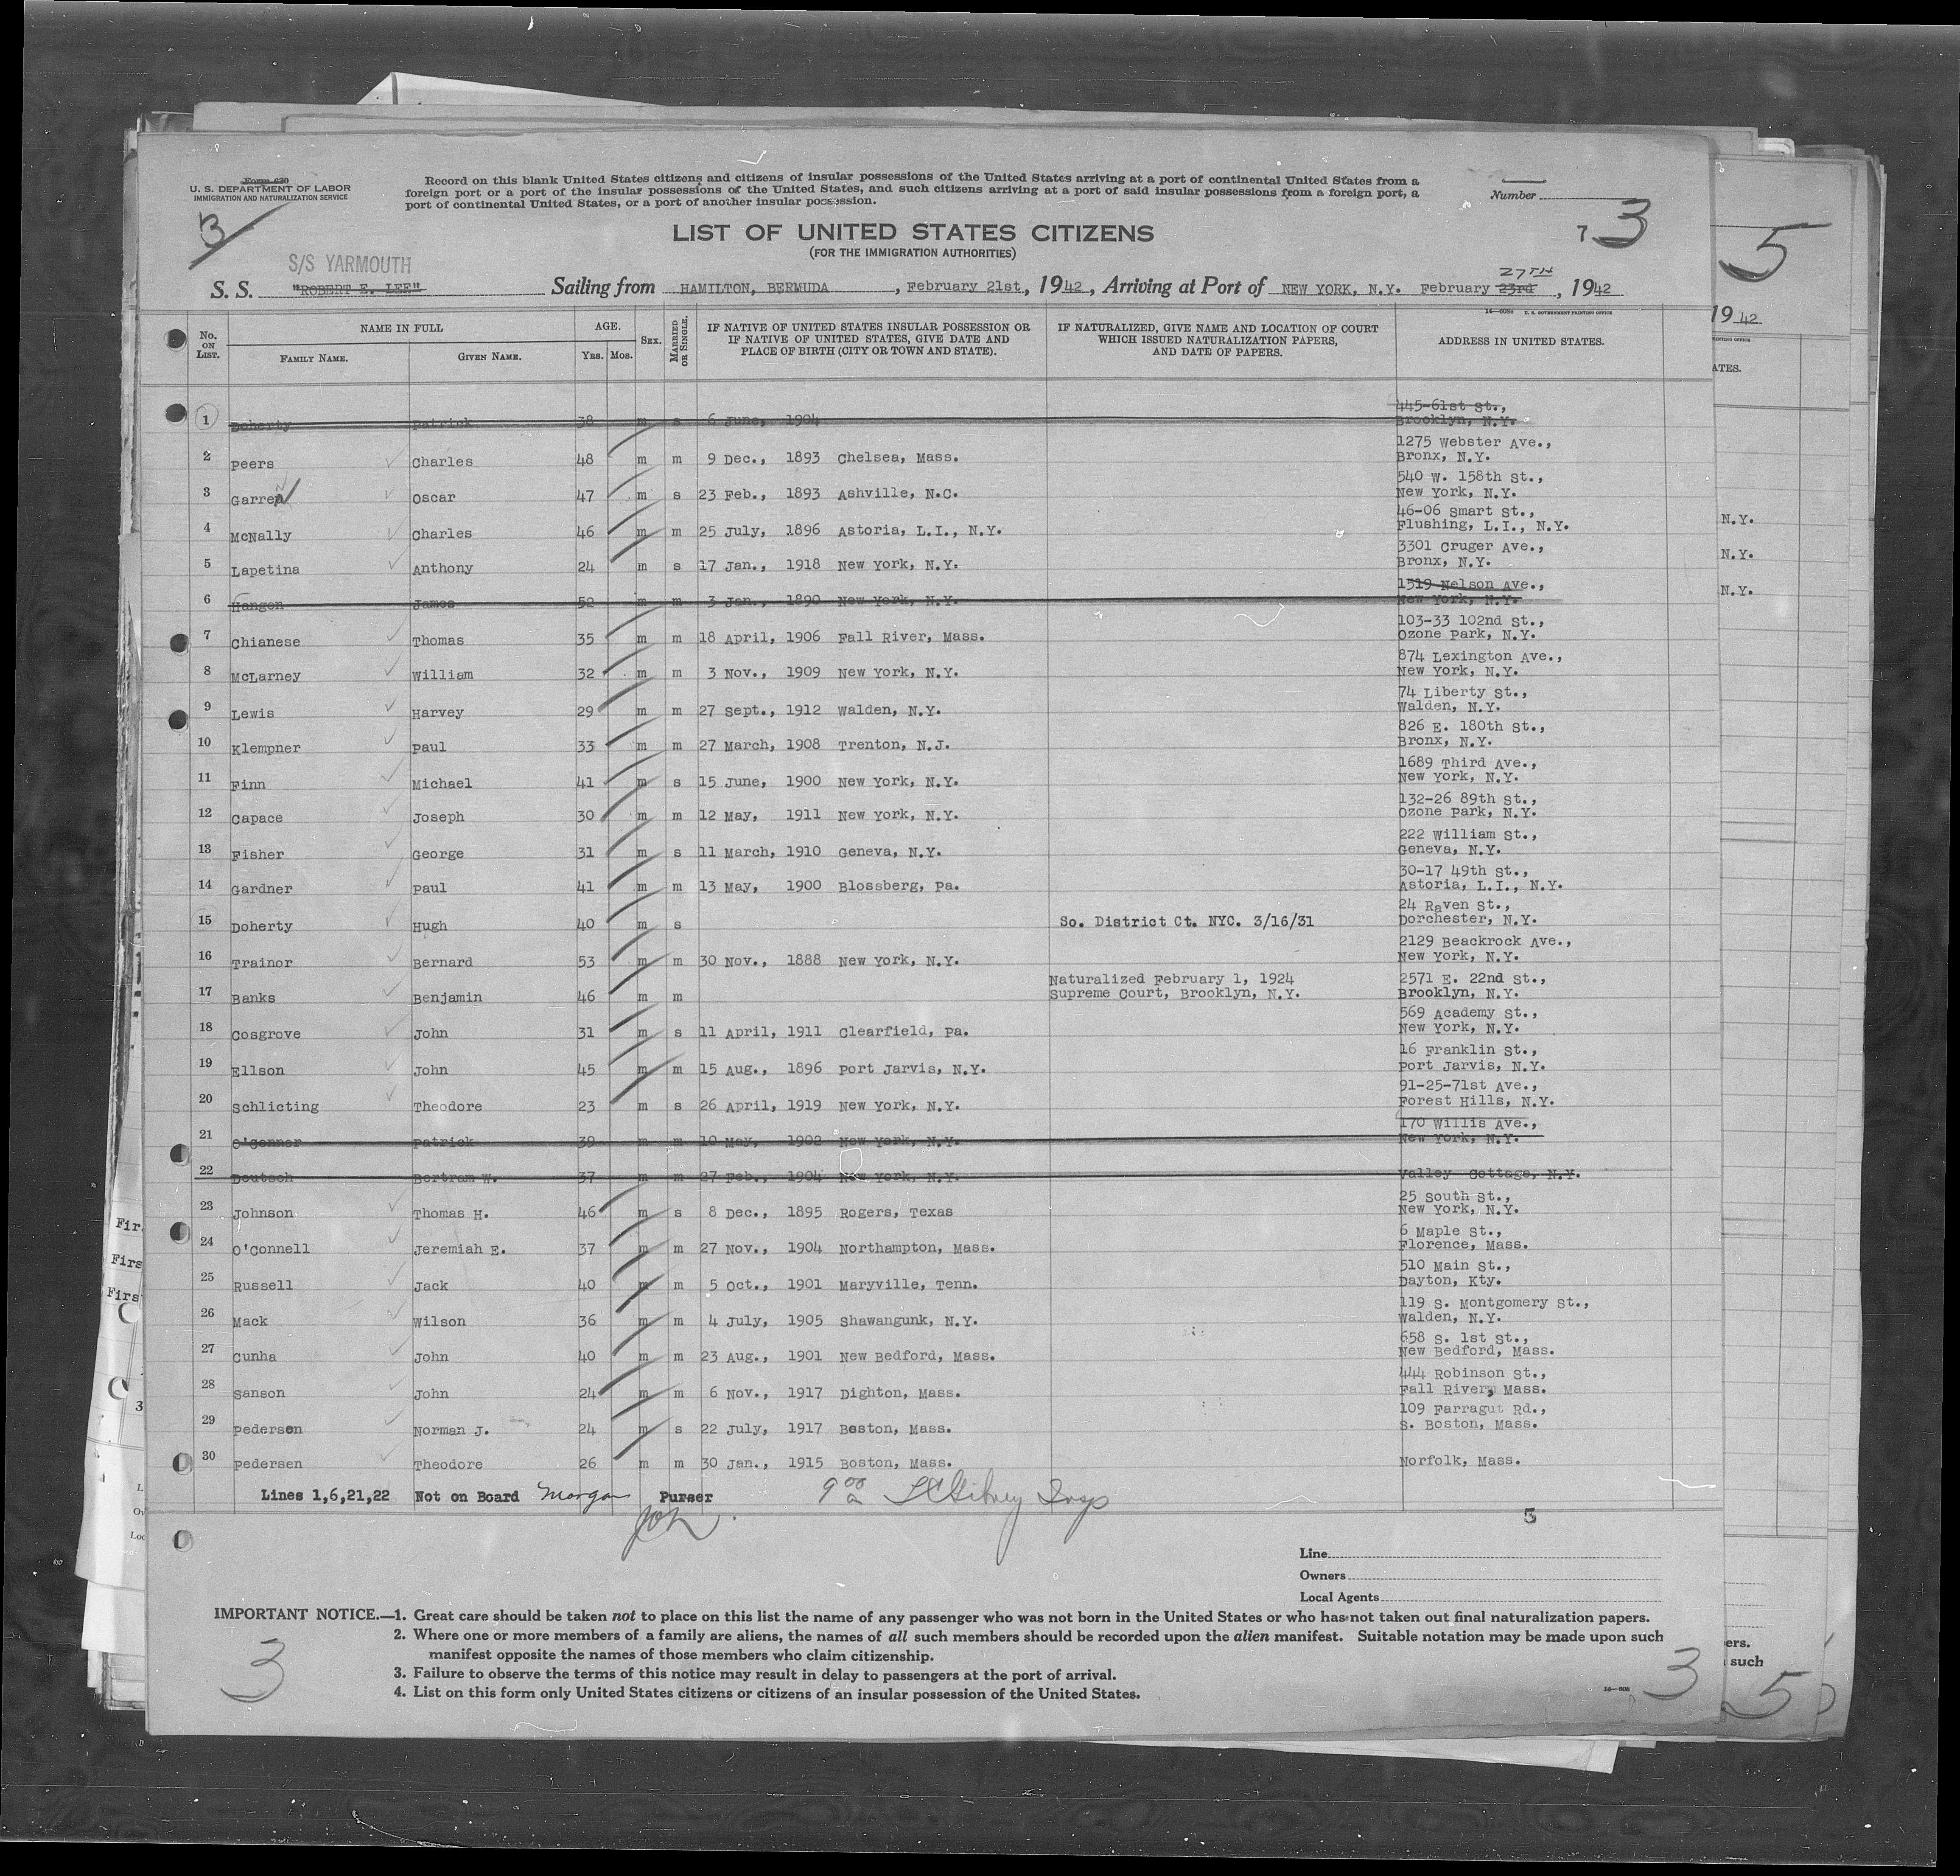 Form 630
U. S. DEPARTMENT OF LABOR
IMMIGRATION AND NATURALIZATION SERVICE
Record on this blank United States citizens and citizens of insular possessions of the United States arriving at a port of continental United States from a
foreign port or a port of the insular possessions of the United States, and such citizens arriving at a port of said insular possessions from a foreign port, a
port of continental United States, or a port of another insular possession.
Number
3
LIST OF UNITED STATES CITIZENS
(FOR THE IMMIGRATION AUTHORITIES)
7 3
5
S/S YARMOUTH
27TH
S. S. "ROBERT E. LEE" Sailing from HAMILTON, BERMUDA, February 21st, 1942, Arriving at Port of NEW YORK, N.Y. February 23rd, 1942
1942
U. S. GOVERNMENT PRINTING OFFICE
No. ON LIST. NAME IN FULL FAMILY NAME. GIVEN NAME. AGE. Yrs. Mos. Sex. MARRIED OR SINGLE. IF NATIVE OF UNITED STATES INSULAR POSSESSION OR IF NATIVE OF UNITED STATES, GIVE DATE AND PLACE OF BIRTH (CITY OR TOWN AND STATE). IF NATURALIZED, GIVE NAME AND LOCATION OF COURT WHICH ISSUED NATURALIZATION PAPERS, AND DATE OF PAPERS. ADDRESS IN UNITED STATES.
ATES.
1 Doherty Patrick 38 m s 6 June, 1904 445-61st St.,
Brooklyn, N.Y.
2 Peers Charles 48 m m 9 Dec., 1893 Chelsea, Mass. 1275 Webster Ave.,
Bronx, N.Y.
3 Garren Oscar 47 m s 23 Feb., 1893 Ashville, N.C. 540 W. 158th St.,
New York, N.Y.
4 McNally Charles 46 m m 25 July, 1896 Astoria, L.I., N.Y. 46-06 Smart St.,
Flushing, L.I., N.Y.
N.Y.
5 Lapetina Anthony 24 m s 17 Jan., 1918 New York, N.Y. 3301 Cruger Ave.,
Bronx, N.Y.
N.Y.
6 Hangen James 52 m m 3 Jan., 1890 New York, N.Y. 1519 Nelson Ave.,
New York, N.Y.
N.Y.
7 Chianese Thomas 35 m m 18 April, 1906 Fall River, Mass. 103-33 102nd St.,
Ozone Park, N.Y.
8 McLarney William 32 m m 3 Nov., 1909 New York, N.Y. 874 Lexington Ave.,
New York, N.Y.
9 Lewis Harvey 29 m m 27 Sept., 1912 Walden, N.Y. 74 Liberty St.,
Walden, N.Y.
10 Klempner Paul 33 m m 27 March, 1908 Trenton, N.J. 826 E. 180th St.,
Bronx, N.Y.
11 Finn Michael 41 m s 15 June, 1900 New York, N.Y. 1689 Third Ave.,
New York, N.Y.
12 Capace Joseph 30 m m 12 May, 1911 New York, N.Y. 132-26 89th St.,
Ozone Park, N.Y.
13 Fisher George 31 m s 11 March, 1910 Geneva, N.Y. 222 William St.,
Geneva, N.Y.
14 Gardner Paul 41 m m 13 May, 1900 Blossberg, Pa. 30-17 49th St.,
Astoria, L.I., N.Y.
15 Doherty Hugh 40 m s So. District Ct. NYC. 3/16/31 24 Raven St.,
Dorchester, N.Y.
16 Trainor Bernard 53 m m 30 Nov., 1888 New York, N.Y. 2129 Beackrock Ave.,
New York, N.Y.
17 Banks Benjamin 46 m m Naturalized February 1, 1924 2571 E. 22nd St.,
Supreme Court, Brooklyn, N.Y. Brooklyn, N.Y.
18 Cosgrove John 31 m s 11 April, 1911 Clearfield, Pa. 569 Academy St.,
New York, N.Y.
19 Ellson John 45 m m 15 Aug., 1896 Port Jarvis, N.Y. 16 Franklin St.,
Port Jarvis, N.Y.
20 Schlicting Theodore 23 m s 26 April, 1919 New York, N.Y. 91-25-71st Ave.,
Forest Hills, N.Y.
21 O'Connor Patrick 39 m m 10 May, 1902 New York, N.Y. 170 Willis Ave.,
New York, N.Y.
22 Deutsch Bertram W. 37 m m 27 Feb., 1904 New York, N.Y. Valley Cottage, N.Y.
23 Johnson Thomas H. 46 m s 8 Dec., 1895 Rogers, Texas 25 South St.,
New York, N.Y.
24 O'Connell Jeremiah E. 37 m m 27 Nov., 1904 Northampton, Mass. 6 Maple St.,
Florence, Mass.
25 Russell Jack 40 m m 5 Oct., 1901 Maryville, Tenn. 510 Main St.,
Dayton, Kty.
26 Mack Wilson 36 m m 4 July, 1905 Shawangunk, N.Y. 119 S. Montgomery St.,
Walden, N.Y.
27 Cunha John 40 m m 23 Aug., 1901 New Bedford, Mass. 658 S. 1st St.,
New Bedford, Mass.
28 Sanson John 24 m m 6 Nov., 1917 Dighton, Mass. 444 Robinson St.,
Fall River, Mass.
29 Pedersen Norman J. 24 m s 22 July, 1917 Boston, Mass. 109 Farragut Rd.,
S. Boston, Mass.
30 Pedersen Theodore 26 m m 30 Jan., 1915 Boston, Mass. Norfolk, Mass.
Lines 1,6,21,22 Not on Board Morgan Purser 9 00 a Insp
5
Line
Owners
Local Agents
IMPORTANT NOTICE.—1. Great care should be taken not to place on this list the name of any passenger who was not born in the United States or who has not taken out final naturalization papers.
2. Where one or more members of a family are aliens, the names of all such members should be recorded upon the alien manifest. Suitable notation may be made upon such
manifest opposite the names of those members who claim citizenship.
3. Failure to observe the terms of this notice may result in delay to passengers at the port of arrival.
4. List on this form only United States citizens or citizens of an insular possession of the United States.
ers.
such
3
3
5
Fir
Firs
Firs
3